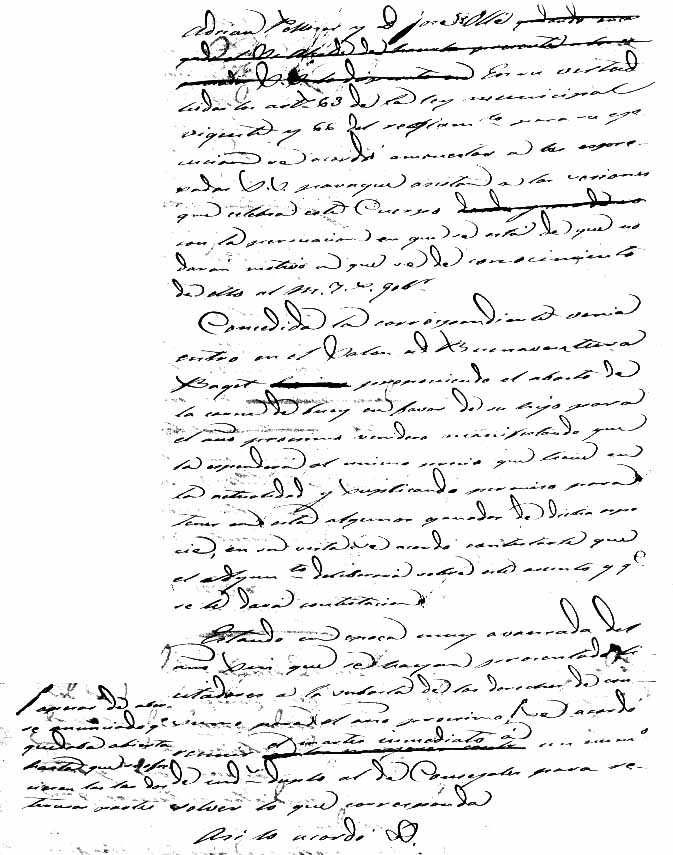 Adrian Pellicer y D. José Ollé
En su virtud
vistos los artos 63 de la ley municipal
vigente y 66 del reglamto para su eje
cucion se acordó amonestar a los espre-
sados S.S. para que asistan a las sesiones
que celebra este Cuerpo
con la persuacion en que se está de que no
daran motivo a que se de conocimiento
de ello al M. I. S. gobr
Concedida la correspondiente venia
entro en el Salon de Buenaventura
Baget proponiendo el abasto de
la carne de buey en favor de su hijo para
el año procsimo venidero manifestando que
la espenderá al mismo precio que tiene en
la actualidad y suplicando permiso para
tener en esta algunos ganados de dicha espe
cie, en su vista se acordó contestarle que
el Ayunto deliberaria sobre este asunto y qe
se le dará contestacion.
Estando en epoca muy avanzada del
año sin que se hayan presentado li
citadores a la subasta de los derechos de con
sumos para el año procsimo, se acordó
reunir un numo
de indos duplo al de Concejales para re-
solver lo que corresponda
Asi lo acordó
Apesar de aber
se anunciado qe
quedaba abierta